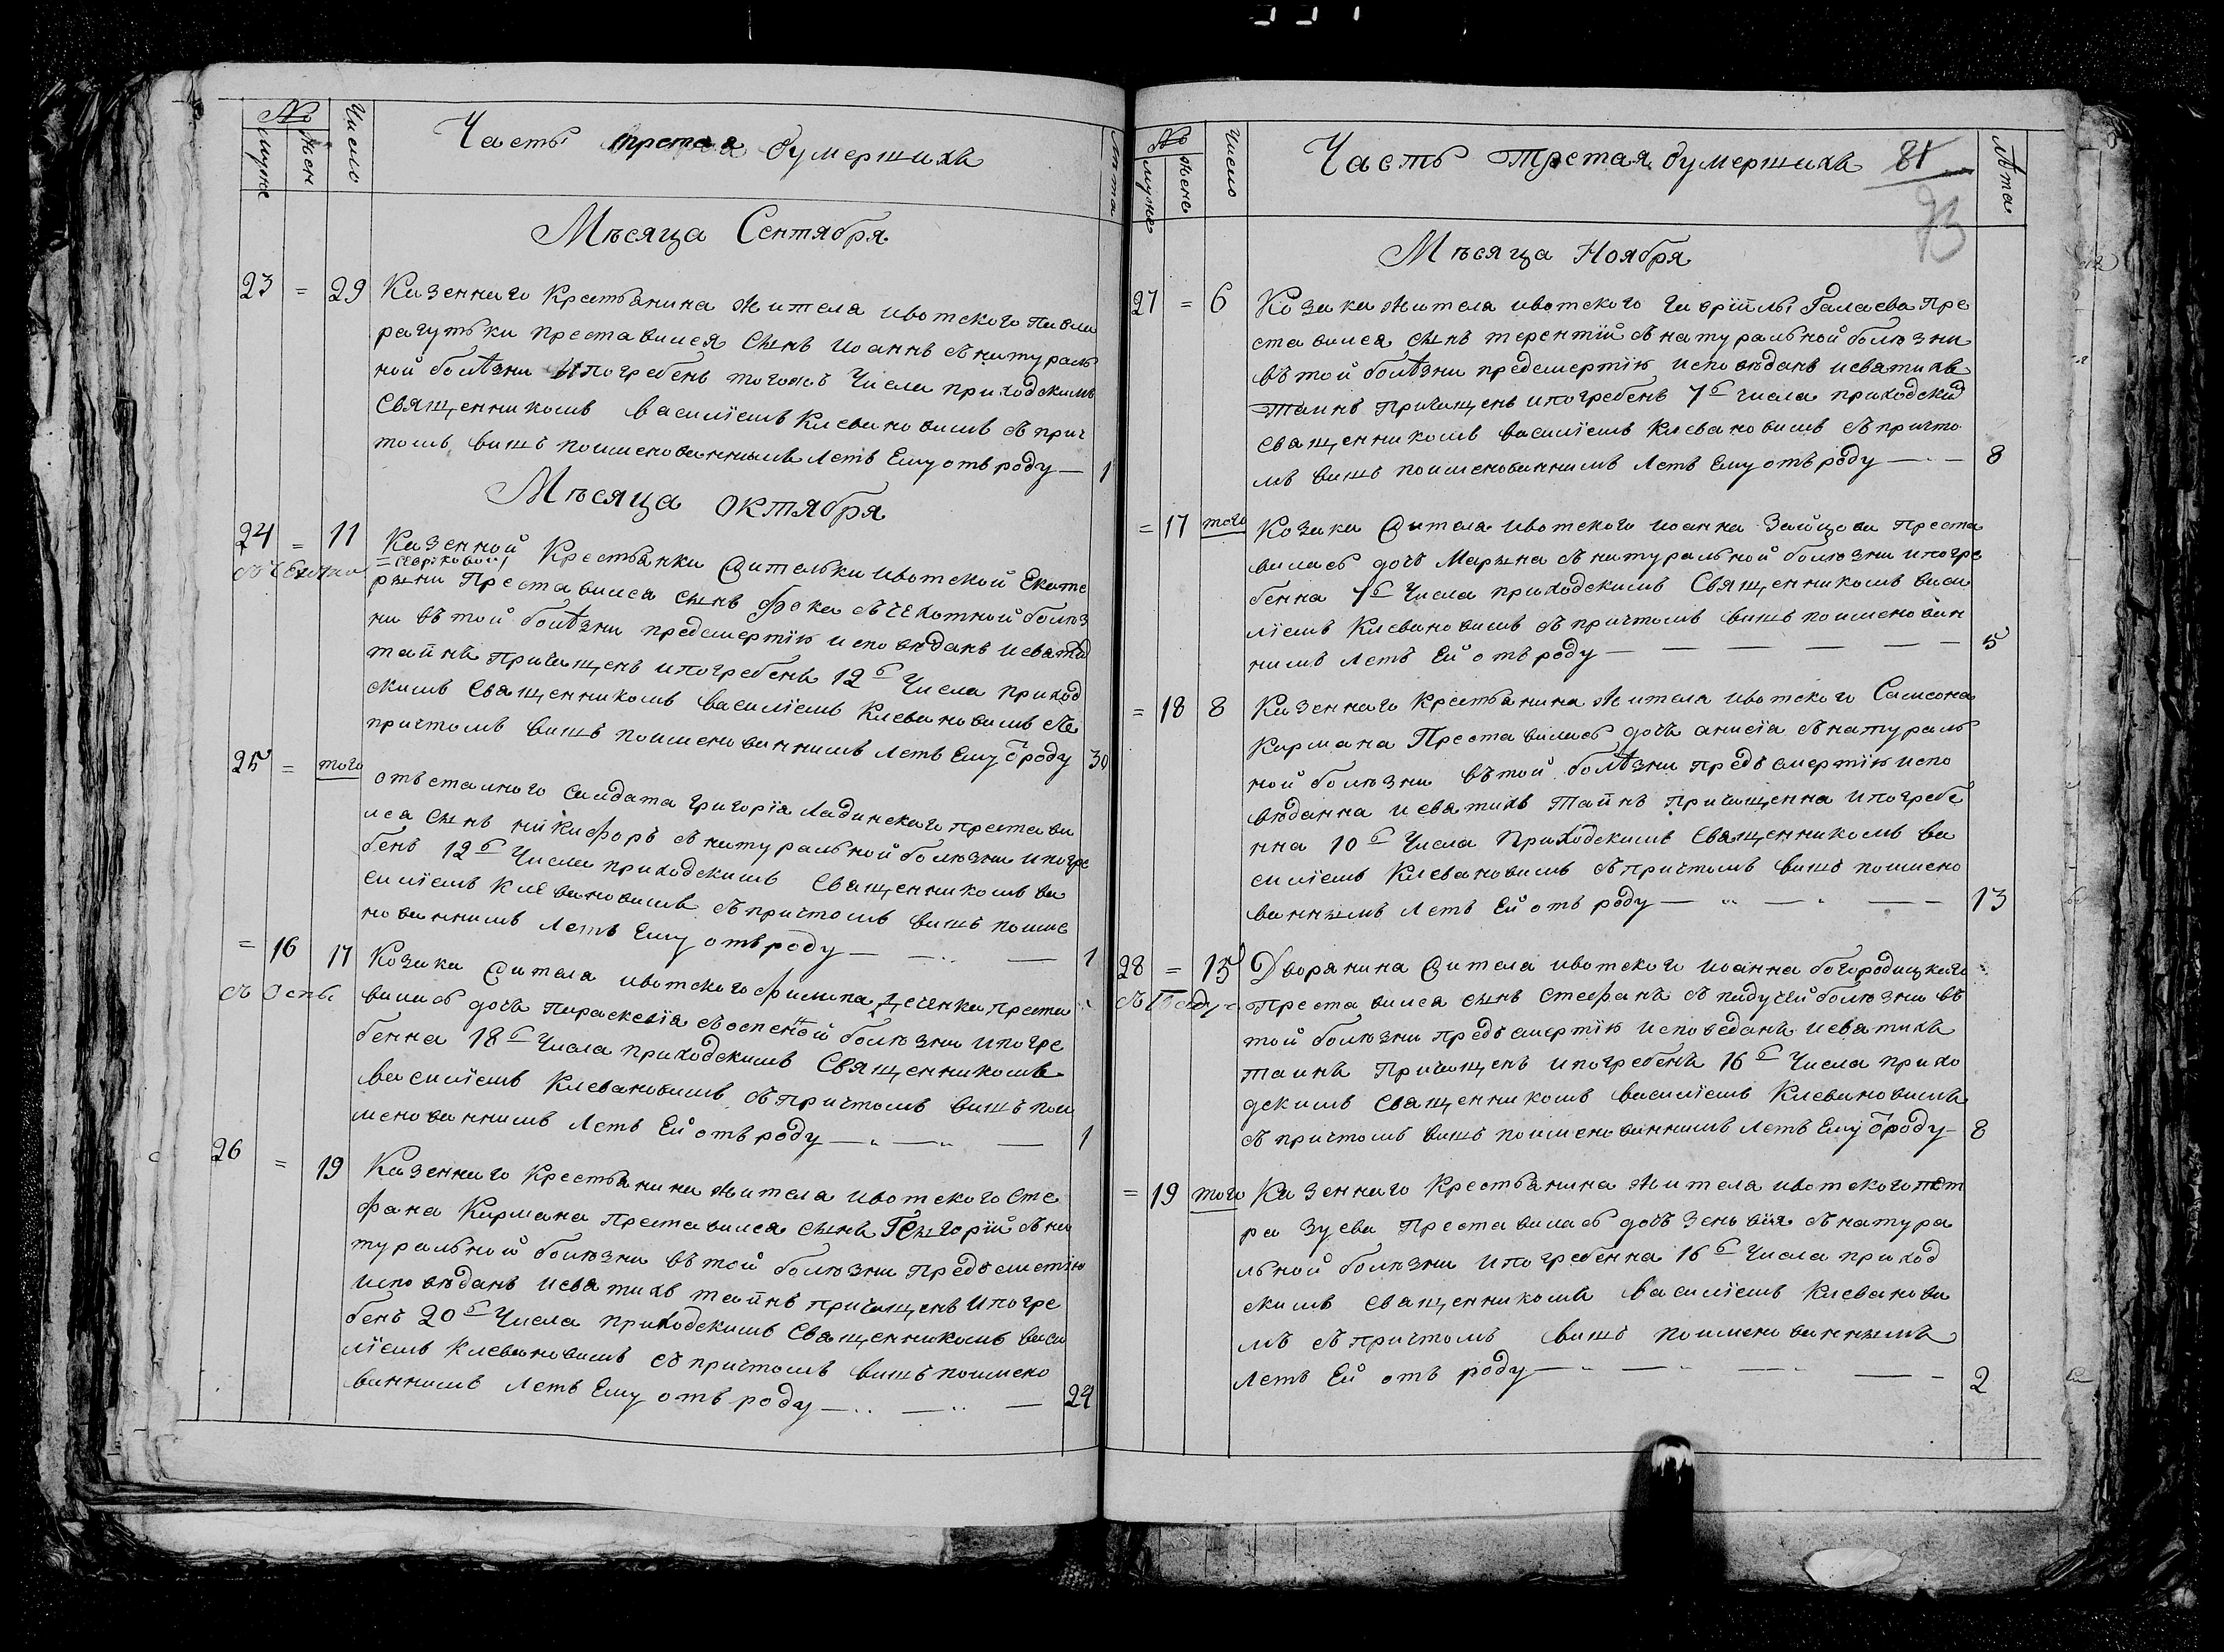 №
муже
жен
Число
Часть третая оумершихъ
Лѣта
Мѣсяца Сентября
23 = 29 Казеннаго Крестьянина жителя ивотского Павла
рагутьки преставился сынъ иоаннъ съ натураль
ной болѣзни и погребенъ тогожъ Числа приходскимъ
Священникомъ василіемъ Клевановимъ съ прич
томъ вишъ поименованнимъ летъ Ему отъ роду — 1
Мѣсяца октября
24 = 11 Казенной Крестьянки жительки ивотской Екате
рыни преставился сынъ фока съ чехотной болюз
ни въ той болѣзни предсмертію исповѣданъ исвятих
тайнъ причащенъ и погребенъ 12го Числа приход
скимъ Священникомъ василіемъ Клевановимъ съ
причтомъ вишъ поименованнимъ летъ Ему ѿ роду 30
25 = того
отъставного салдата григорія Ладинского престави
лся сынъ никифоръ съ натуральной болюзни и погре
бенъ 12го Числа приходскимъ Священникомъ ва
силіемъ Клевановимъ съ причтомъ вишъ поиме
нованнимъ летъ Ему отъ роду — 1
= 16 17 Козака жителя ивотского филипа преста
съ Оспы
вилась дочь параскевія съ оспенной болюзни и погре
бенна 18го Числа приходскимъ Священникомъ
василіемъ Клевановимъ съ причтомъ вишъ пои
менованнимъ летъ Ей отъ роду — 1
26 = 19 Казеннаго Крестьянина жителя ивотского Сте
фана Кармана преставился сынъ Григорій съ на
туральной болюзни въ той болюзни предъ сметію
исповѣданъ исвятихъ тайнъ причащенъ и погре
бенъ 20го Числа приходскимъ Священникомъ васи
ліемъ Клевановимъ съ причтомъ вишъ поимено
ваннимъ летъ Ему отъ роду — 24
№
муже
жене
Число
Часть третая оумершихъ
81
93
Лѣта
Мѣсяца Ноября
27 = 6 Козака жителя ивотского Гавріила Галаева пре
ставился сынъ терентій съ натуральной болюзни
въ той болѣзни предсмертію исповѣданъ исвятихъ
таинъ причащенъ и погребенъ 7го числа приходским
священникомъ василіемъ Клевановимъ съ причто
мъ вишъ поименованнимъ летъ Ему отъ роду — 8
= 17 того Козака жителя ивотского иоанна Зайцова преста
вилась дочь Марына съ натуральной болюзни и погре
бенна 7го Числа приходскимъ Священникомъ васи
ліемъ Клевановимъ съ причтомъ вишъ поименован
нимъ летъ Ей отъ роду — 5
= 18 8 Казеннаго Крестьянина жителя ивотского Самсона
Кармана Преставилась дочь анисія съ натураль
ной болюзни въ той болѣзни предъ смертію испо
вѣданна исвятихъ тайнъ причащенна и погребе
нна 10го Числа Приходскимъ Священникомъ ва
силіемъ Клевановимъ съ причтомъ вишъ поимено
ваннымъ летъ Ей отъ роду — 13
28 = 15 Дворянина жителя ивотского иоанна богородицкого
преставился сынъ стефанъ съ падучей болюзни въ
той болюзни предъ смертію исповеданъ исвятихъ
таинъ Причащенъ и погребенъ 16го Числа прихо
дскимъ священникомъ василіемъ Клевановимъ
съ причтомъ вишъ поименованнимъ летъ Ему ѿ роду — 8
= 19 того Казеннаго Крестьянина жителя ивотского пет
ра зуева Преставилась дочь зеновія съ натура
льной болюзни и погребенна 16го Числа приход
скимъ священникомъ василіемъ Клеванови
мъ съ причтомъ вишъ поименованнымъ
летъ Ей отъ роду — 2